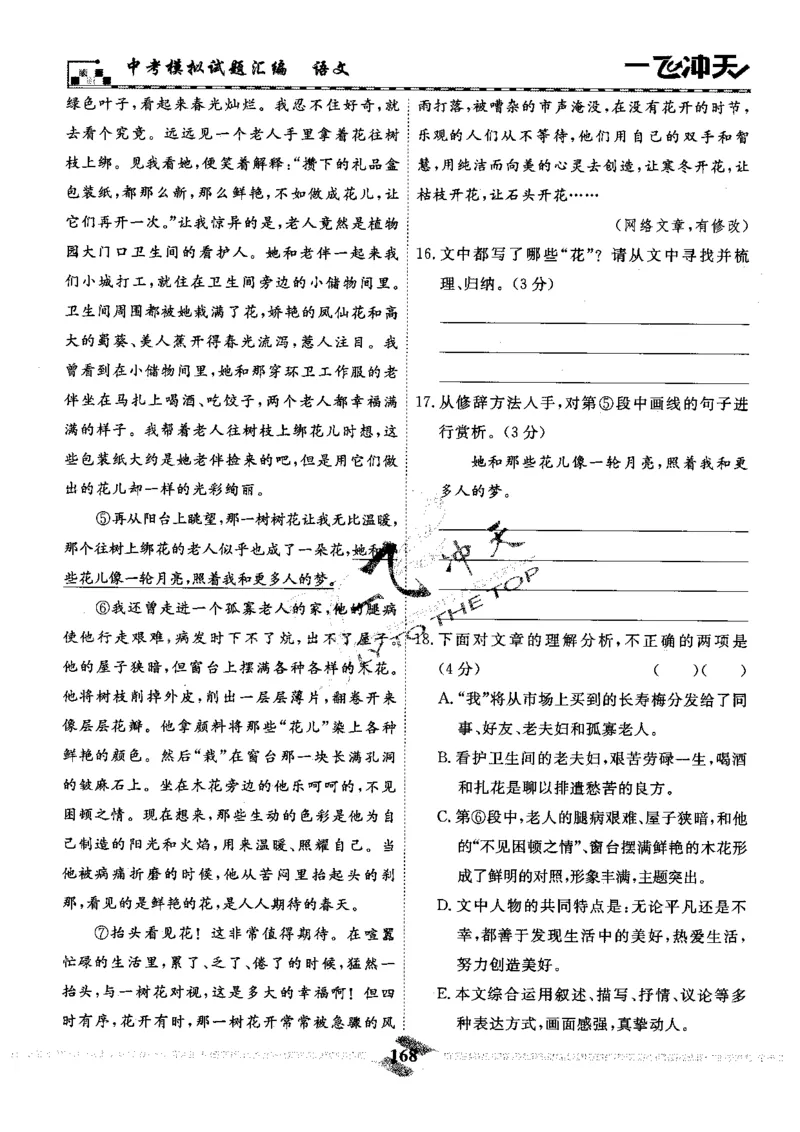 中考模拟试题汇编 语文
一飞冲天
绿色叶子，看起来春光灿烂。我忍不住好奇，就
去看个究竟。远远见一个老人手里拿着花往树
枝上绑。见我看她，便笑着解释：“攒下的礼品盒
包装纸，都那么新，那么鲜艳，不如做成花儿，让
它们再开一次。”让我惊异的是，老人竟然是植物
园大门口卫生间的看护人。她和老伴一起来我
们小城打工，就住在卫生间旁边的小储物间里。
卫生间周围都被她栽满了花，娇艳的凤仙花和高
大的蜀葵、美人蕉开得春光流泻，惹人注目。我
曾看到在小储物间里，她和那穿环卫工作服的老
伴坐在马扎上喝酒、吃饺子，两个老人都幸福满
满的样子。我帮着老人往树枝上绑花儿时想，这
些包装纸大约是她老伴捡来的吧，但是用它们做
出的花儿却一样的光彩绚丽。
⑤再从阳台上眺望，那一树树花让我无比温暖，
那个往树上绑花的老人似乎也成了一朵花，她和那
些花儿像一轮月亮，照着我和更多人的梦。
⑥我还曾走进一个孤寡老人的家，他的腿病
使他行走艰难，病发时下不了炕，出不了屋子。
他的屋子狭暗，但窗台上摆满各种各样的木花。
他将树枝削掉外皮，削出一层层薄片，翻卷开来
像层层花瓣。他拿颜料将那些“花儿”染上各种
鲜艳的颜色。然后“栽”在窗台那一块长满孔洞
的皴麻石上。坐在木花旁边的他乐呵呵的，不见
困顿之情。现在想来，那些生动的色彩是他为自
己制造的阳光和火焰，用来温暖、照耀自己。当
他被病痛折磨的时候，他从苦闷里抬起头的刹
那，看见的是鲜艳的花，是人人期待的春天。
⑦抬头看见花！这非常值得期待。在喧嚣
忙碌的生活里，累了、乏了、倦了的时候，猛然一
抬头，与一树花对视，这是多大的幸福啊！但四
时有序，花开有时，那一树花开常常被急骤的风
雨打落，被嘈杂的市声淹没，在没有花开的时节，
乐观的人们从不等待，他们用自己的双手和智
慧，用纯洁而向美的心灵去创造，让寒冬开花，让
枯枝开花，让石头开花……
（网络文章，有修改）
16.文中都写了哪些“花”？请从文中寻找并梳
理、归纳。（3分）
17.从修辞方法入手，对第⑤段中画线的句子进
行赏析。（3分）
她和那些花儿像一轮月亮，照着我和更
多人的梦。
18.下面对文章的理解分析，不正确的两项是
（4分） （ ）（ ）
A.“我”将从市场上买到的长寿梅分发给了同
事、好友、老夫妇和孤寡老人。
B.看护卫生间的老夫妇，艰苦劳碌一生，喝酒
和扎花是聊以排遣愁苦的良方。
C.第⑥段中，老人的腿病艰难、屋子狭暗，和他
的“不见困顿之情”、窗台摆满鲜艳的木花形
成了鲜明的对照，形象丰满，主题突出。
D.文中人物的共同特点是：无论平凡还是不
幸，都善于发现生活中的美好，热爱生活，
努力创造美好。
E.本文综合运用叙述、描写、抒情、议论等多
种表达方式，画面感强，真挚动人。
168